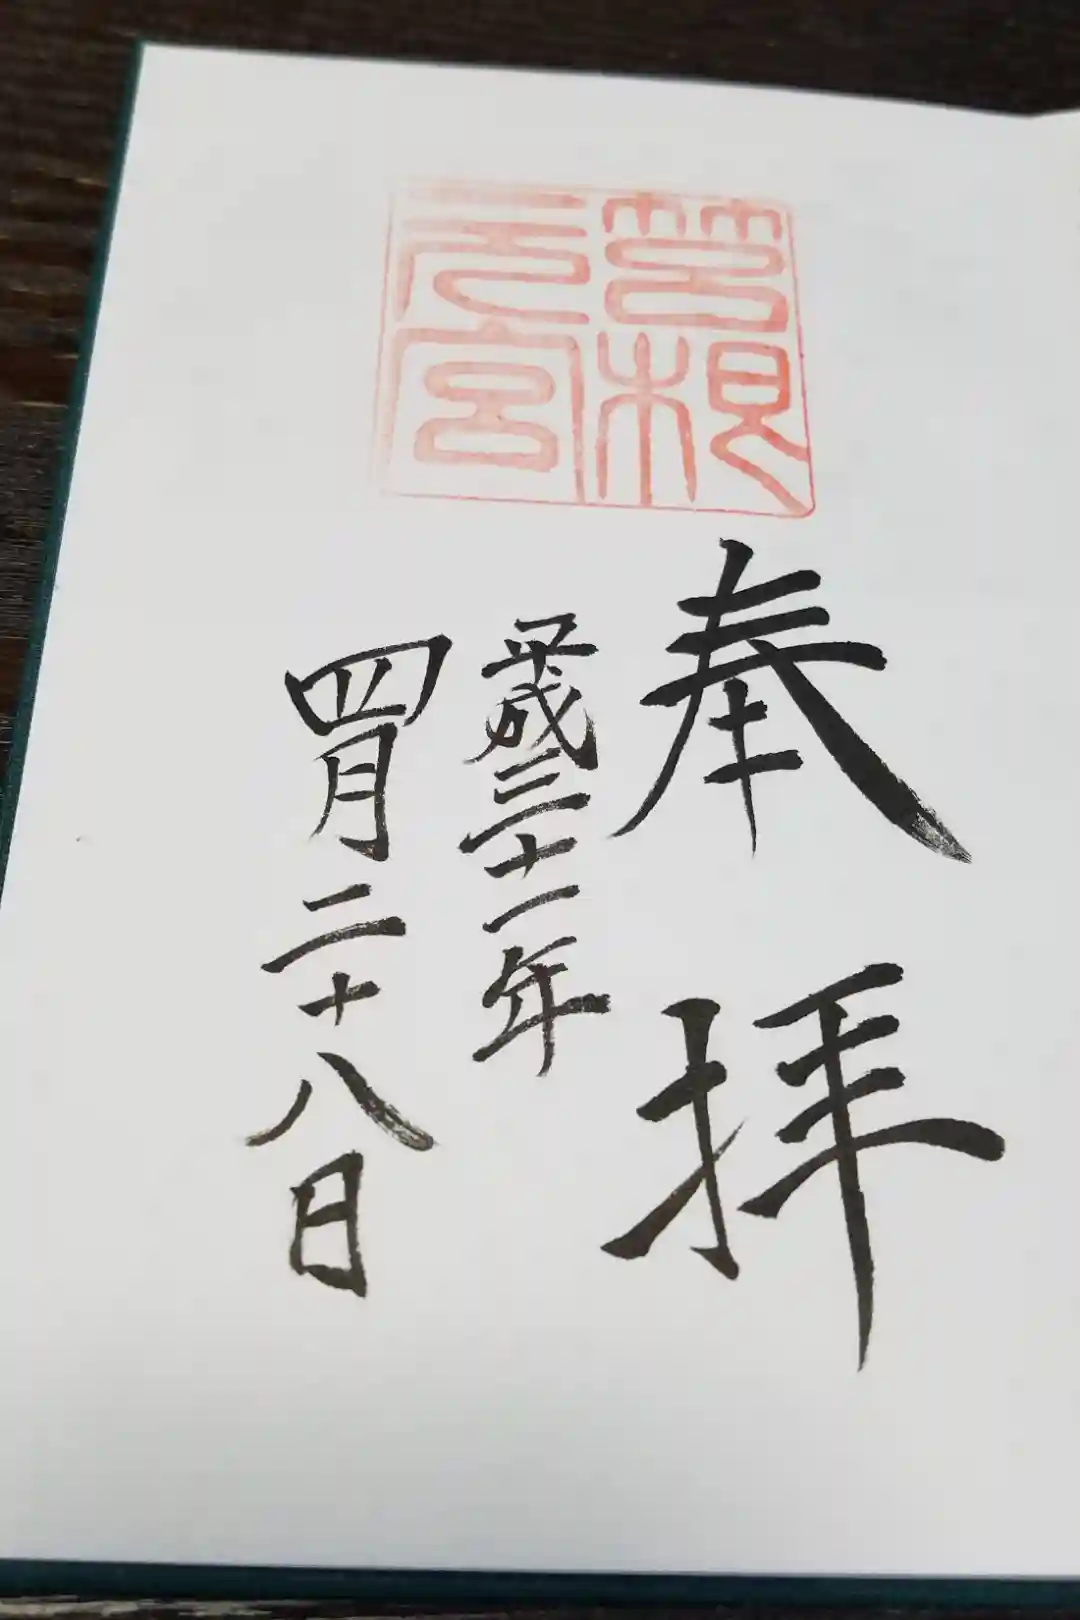 筥根
元宮
奉拝
平成三十一年
四月二十八日